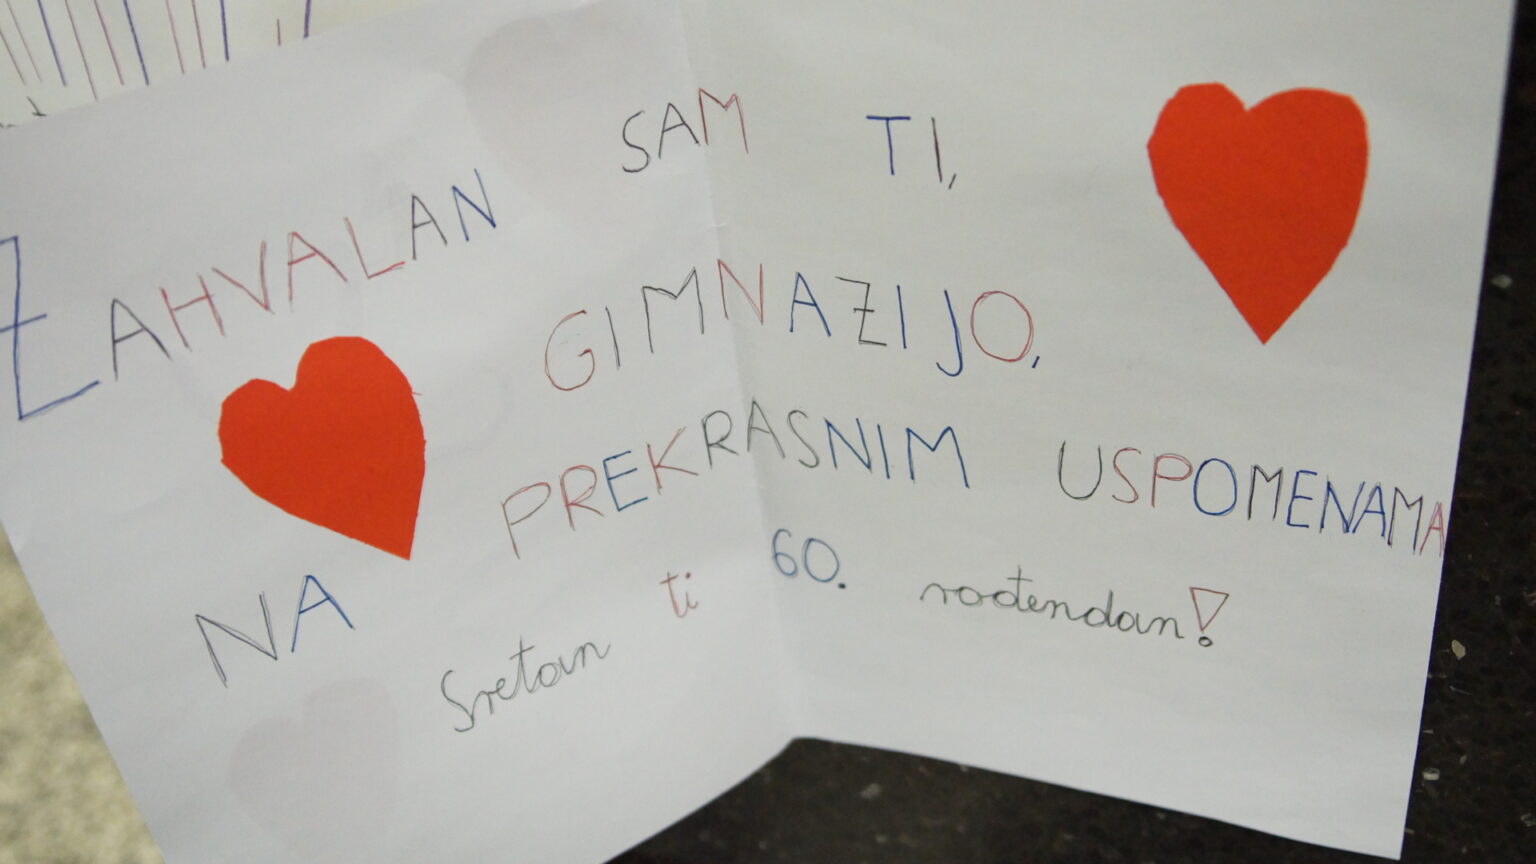 ZAHVALAN SAM TI,
GIMNAZIJO,
NA PREKRASNIM USPOMENAMA
Sretan ti 60. rođendan!